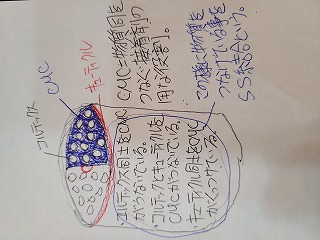 コルテックス
CMC
キューティクル
CMC=物質同士を
つなぐ接着剤の
用な役割。
・コルテックス同士をCMC
がつないでいる。
・コルテックスとキューティクルを
CMCがつないでいる。
・キューティクル同士をCMC
がくっつけている。
この様に物質を
つなげている事を
SS結合という。